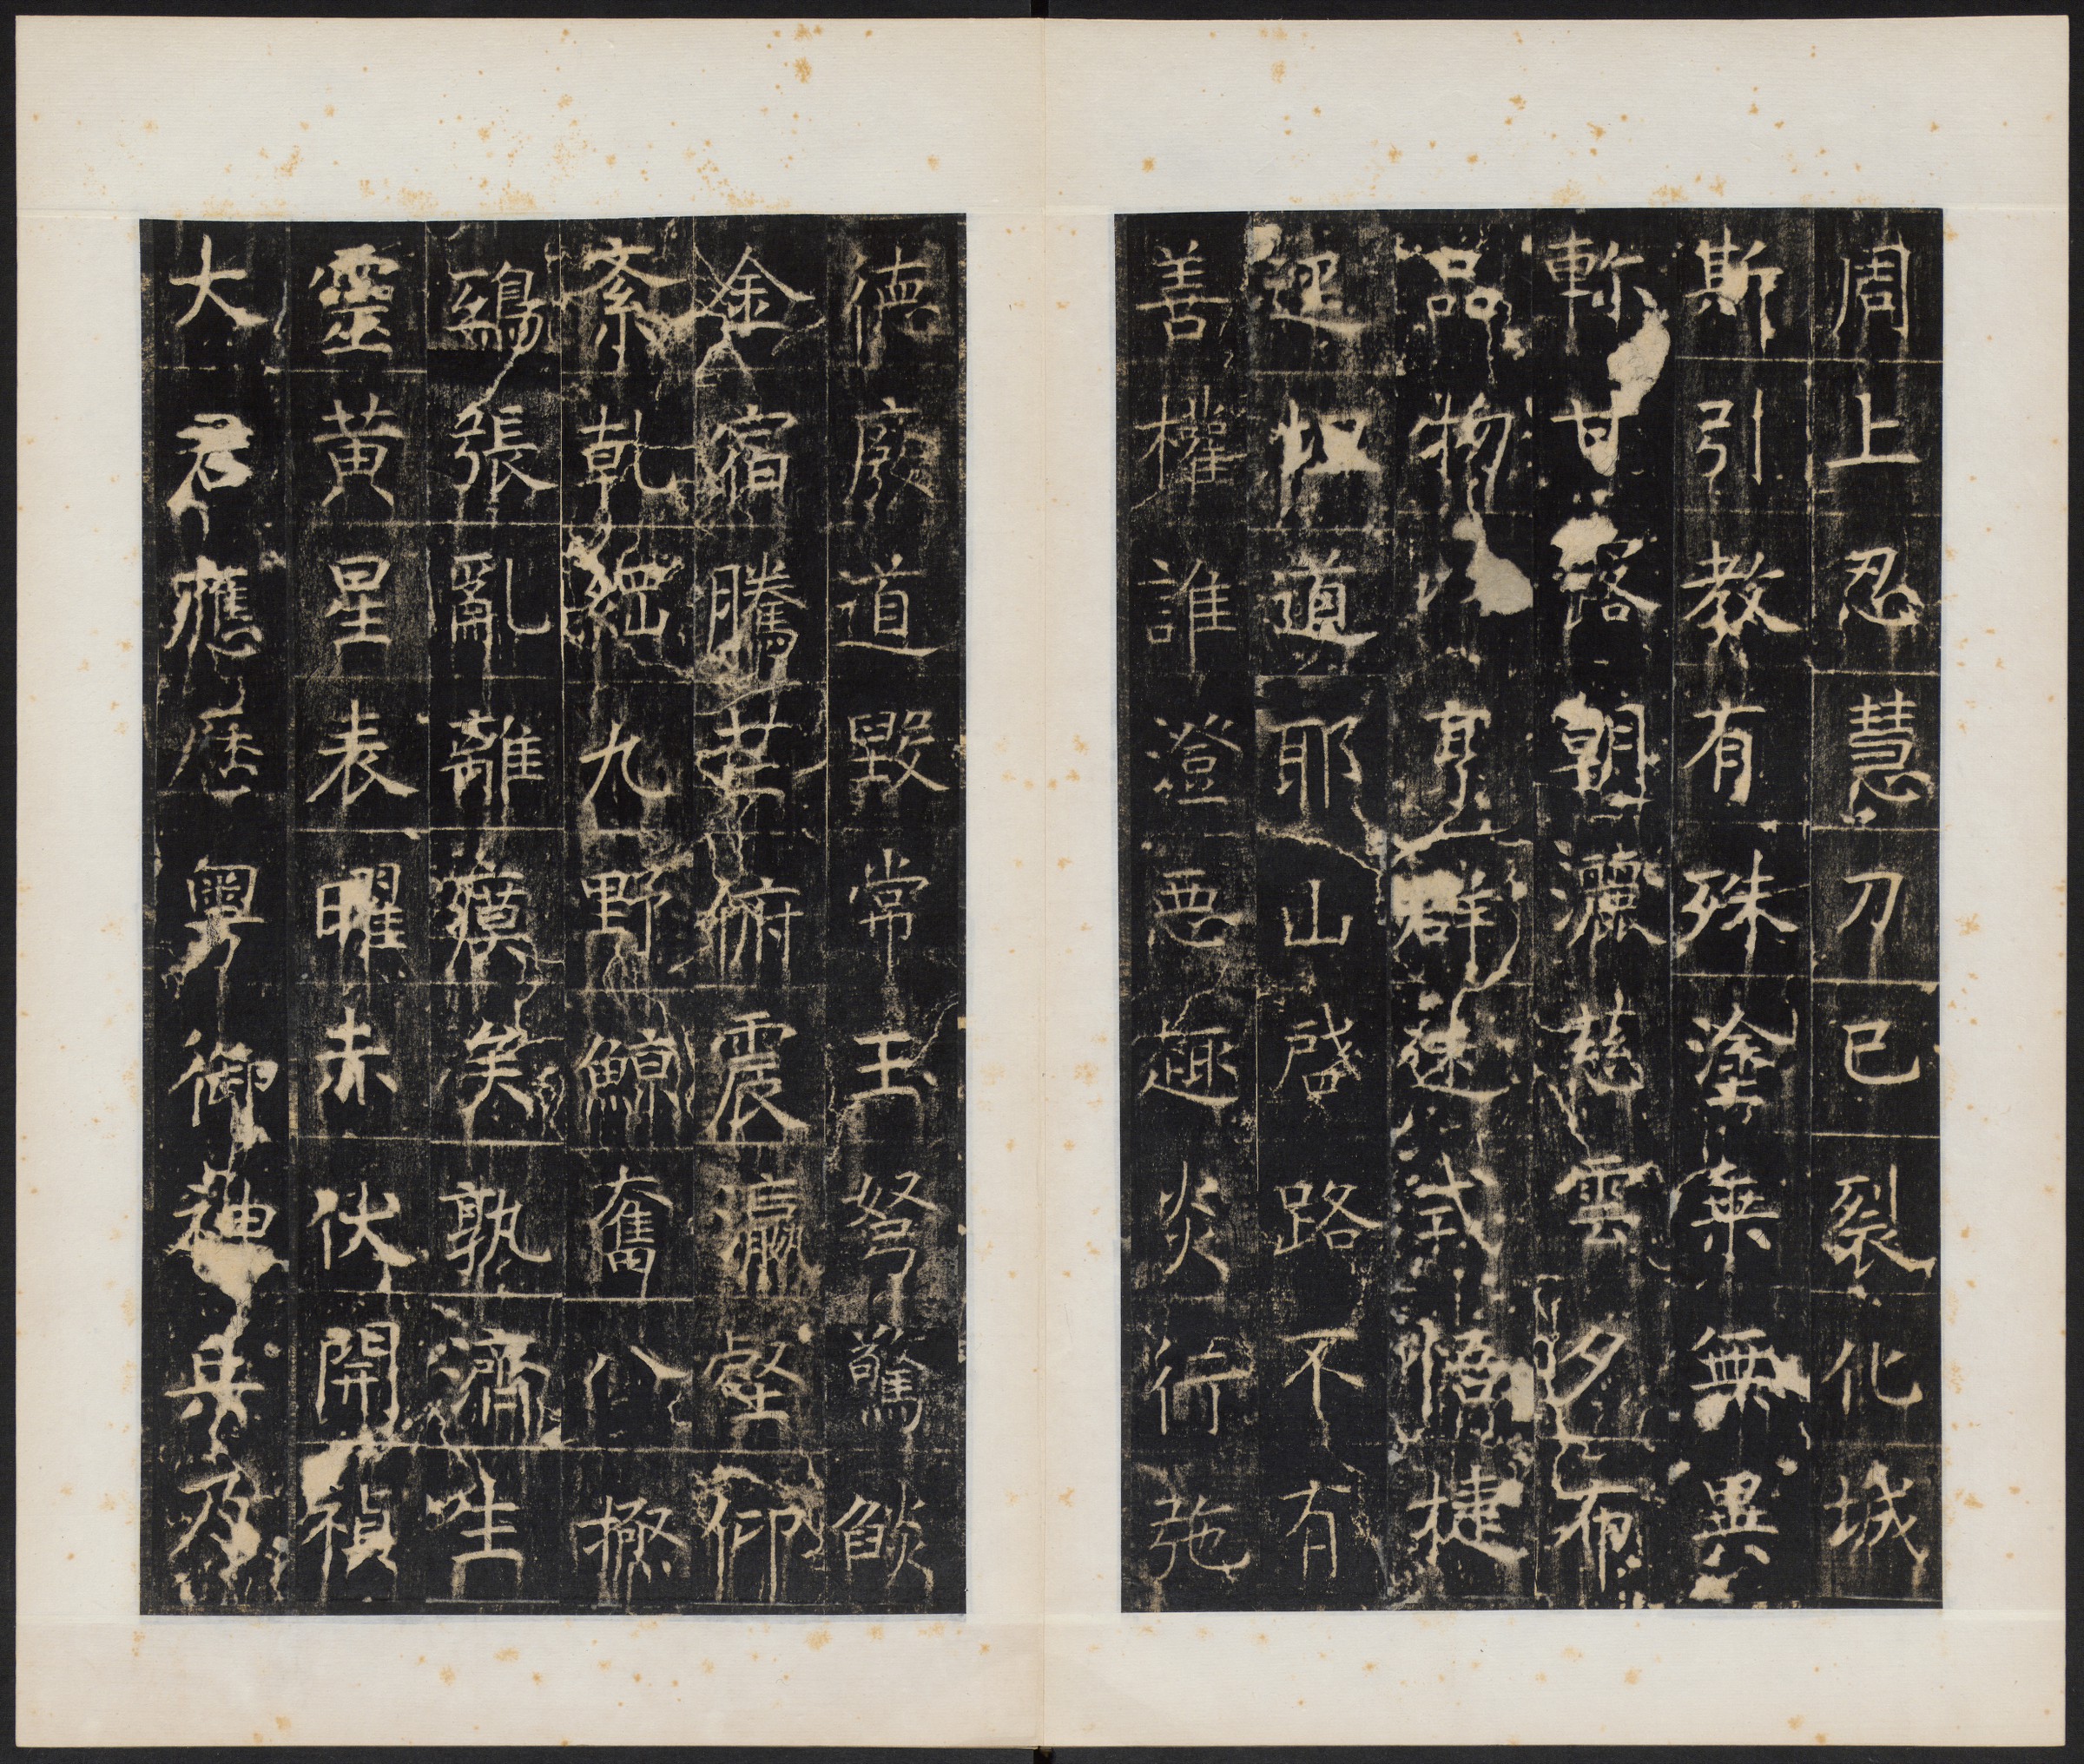 周上忍慧刀已裂化城
斯引教有殊塗乘無異
軫甘露朝灑慈雲夕布
品物以亨群迷式悟捷
逕 道耶山啓路不有
善權誰澄悪趣炎行葹
德廢道毀常玉弩驚餤
金宿騰芒俯震瀛壑仰
紊乾紘九野鯨奮八極
鵶張亂離瘼矣孰濟生
靈黃星表曜赤伏開禎
大君應歴粤御神兵乃